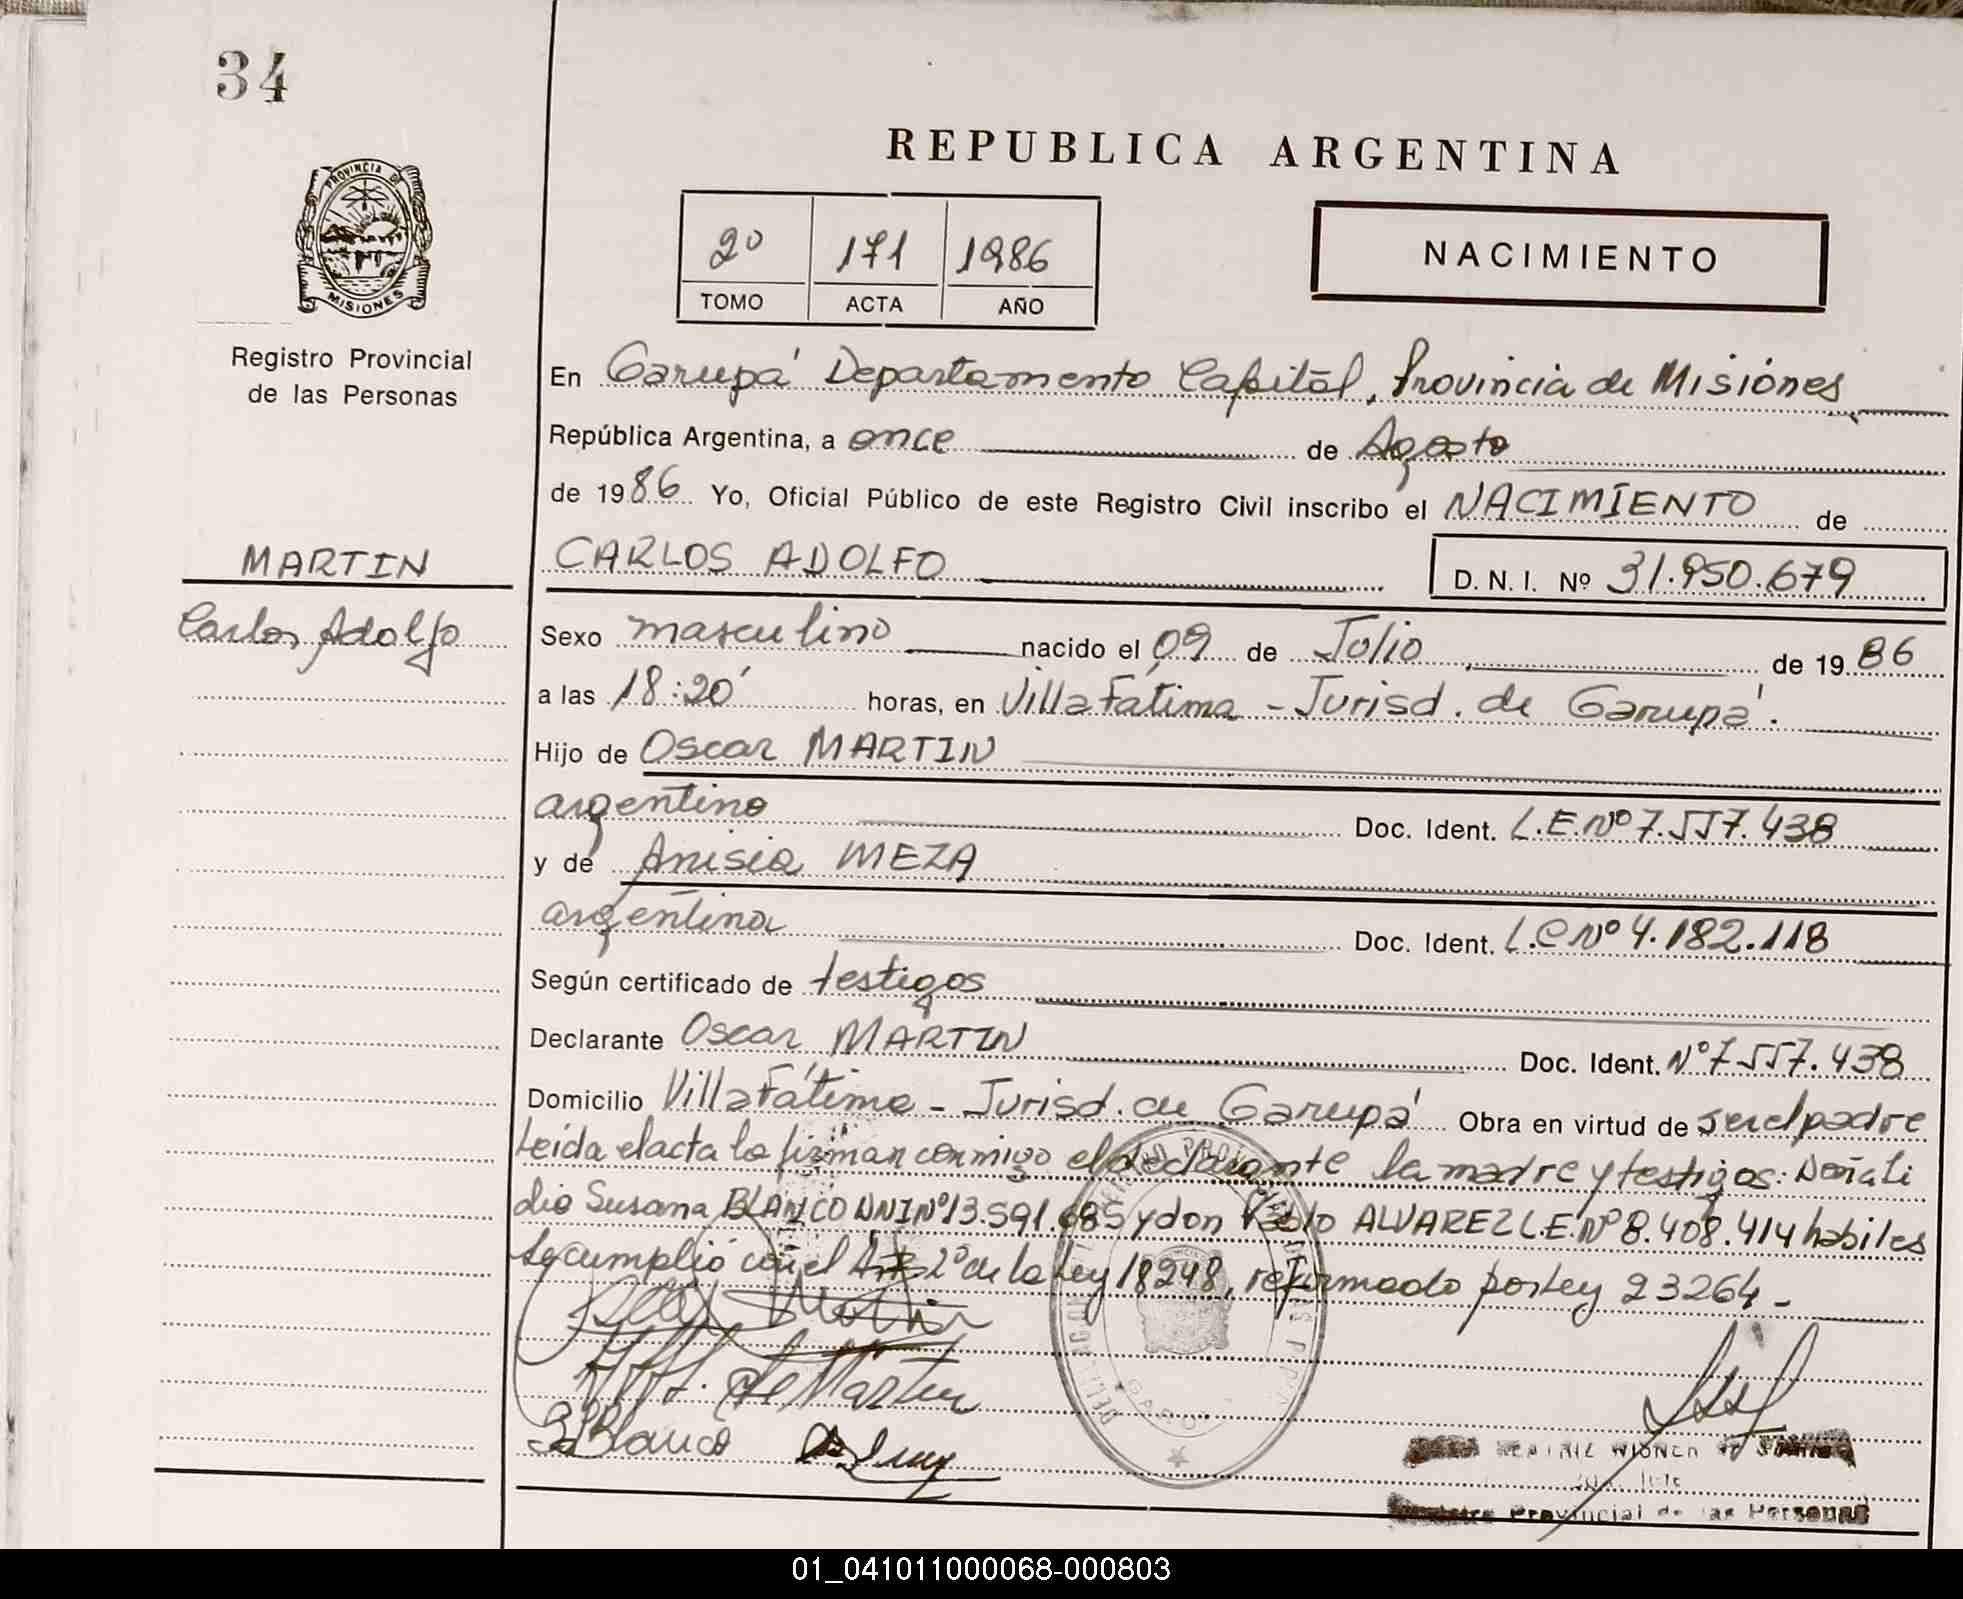 34
REPUBLICA ARGENTINA
PROVINCIA DE
MISIONES
2º 171 1986
TOMO ACTA AÑO
NACIMIENTO
Registro Provincial
de las Personas
En Garupá Departamento Capital, Provincia de Misiones
República Argentina, a once de Agosto
de 1986 Yo, Oficial Público de este Registro Civil inscribo el NACIMIENTO de
MARTIN
CARLOS ADOLFO D. N. I. Nº 31.950.679
Carlos Adolfo
Sexo masculino nacido el 09 de Julio de 19 86
a las 18:20' horas, en Villa Fátima - Jurisd. de Garupá.
Hijo de Oscar MARTIN
argentino Doc. Ident. L.E.Nº 7.557.438
y de Anisia MEZA
argentina Doc. Ident. L.C Nº 4.182.118
Según certificado de testigos
Declarante Oscar MARTIN Doc. Ident. Nº 7.557.438
Domicilio Villa Fátima - Jurisd. de Garupá Obra en virtud de ser el padre
Leida el acta la firman conmigo el declarante la madre y testigos: Doña Li
dia Susana BLANCO DNI Nº 13.591.685 y don Pablo ALVAREZ L.E.Nº 8.408.414 habiles
se cumplió con el Art 2º de la Ley 18248, reformado por Ley 23264 -
de Martin
Blanco
BEATRIZ
Registro Provincial de las Personas
01_041011000068-000803